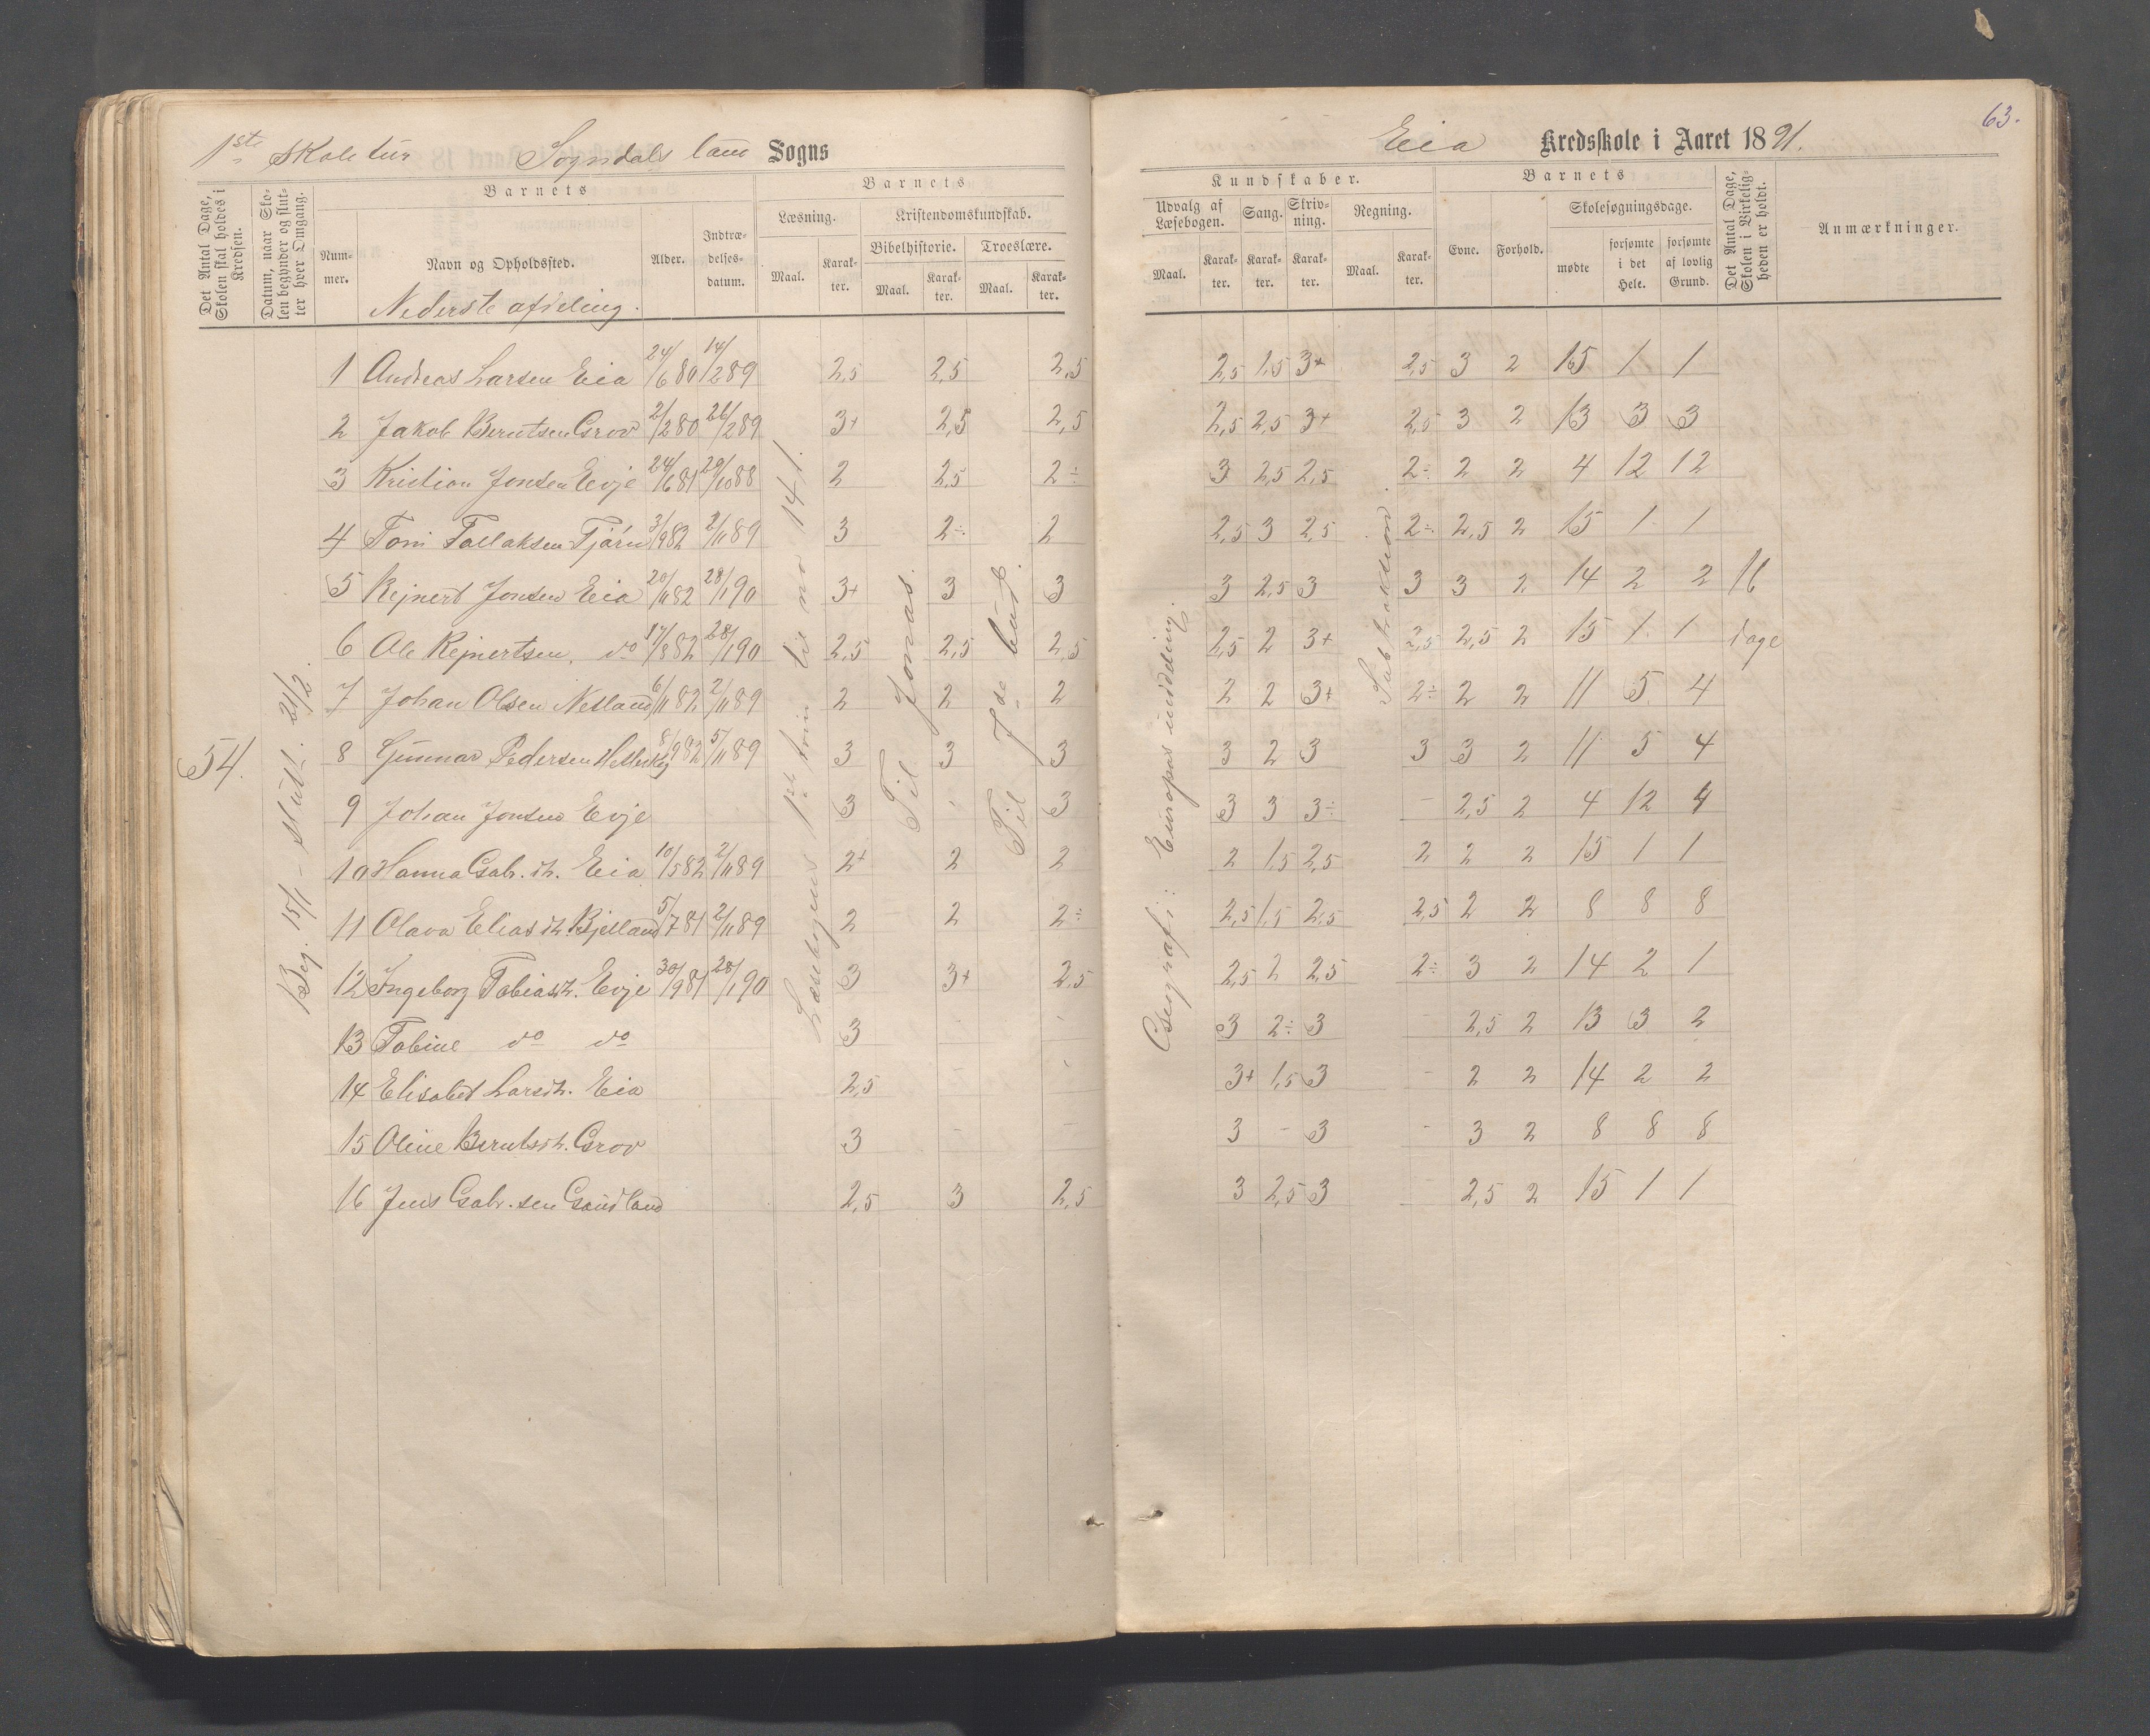 63.
1ste Skoletur Sogndals land Sogns
Eia Kredsskole i Aaret 1891.
Det Antal Dage, Skolen skal holdes i Kredsen.
Datum, naar Skolen begynder og slutter hver Omgang.
Barnets
Nummer.
Navn og Opholdssted.
Alder.
Indtrædelsesdatum.
Barnets
Læsning.
Maal.
Karakter.
Kristendomskundskab.
Bibelhistorie.
Maal.
Karakter.
Troeslære.
Maal.
Karakter.
Kundskaber.
Udvalg af Læsebogen.
Maal.
Karakter.
Sang.
Karakter.
Skrivning.
Karakter.
Regning.
Maal.
Karakter.
Barnets
Evne.
Forhold.
Skolesøgningsdage.
mødte
forsømte i det Hele.
forsømte af lovlig Grund.
Det Antal Dage, Skolen i Virkeligheden er holdt.
Anmærkninger.
Nederste afdeling.
54.
Beg. 15/1 – slutt. 21/2.
Læsebogens 1ste trin til no 141.
Til Jonas.
Til 7de bud.
Geografi: Europas inddeling.
Subtraktion.
16 dage
1 Andreas Larsen Eia 24/6 80 14/2 89 2,5 2,5 2,5 2,5 1,5 3+ 2,5 3 2 15 1 1
2 Jakob Berntsen Grov 2/2 80 26/2 89 3+ 2,5 2,5 2,5 2,5 3+ 2,5 3 2 13 3 3
3 Kristian Jonsen Evje 24/6 81 29/10 88 2 2,5 2÷ 3 2,5 2,5 2÷ 2 2 4 12 12
4 Toni Tollaksen Tjørn 3/9 82 2/11 89 3 2÷ 2 2,5 3 2,5 2÷ 2,5 2 15 1 1
5 Rejnert Jonsen Eia 20/11 82 28/1 90 3+ 3 3 3 2,5 3 3 3 2 14 2 2
6 Ole Rejnertsen do 17/8 82 28/1 90 2,5 2,5 2,5 2,5 2 3+ 2,5 2,5 2 15 1 1
7 Johan Olsen Netland 6/11 82 2/11 89 2 2 2 2 2 3+ 2÷ 2 2 11 5 4
8 Gunnar Pedersen 8/9 82 5/11 89 3 3 3 3 2 3 3 3 2 11 5 4
9 Johan Jonsen Evje 3 3 3 3 3÷ – 2,5 2 4 12 4
10 Hanna Gab.dt. Eia 10/5 82 2/11 89 2+ 2 2 2 1,5 2,5 2 2 2 15 1 1
11 Olava Eliasdt. Bjelland 5/7 81 2/11 89 2 2 2÷ 2,5 1,5 2,5 2,5 2 2 8 8 8
12 Ingeborg Tobiasdt. Evje 30/9 81 28/1 90 3 3+ 2,5 2,5 2 2,5 2÷ 3 2 14 2 1
13 Tobine do do 3 3 2÷ 3 – 2,5 2 13 3 2
14 Elisabet Larsdt. Eia 2,5 – 3+ 1,5 3 – 2 2 14 2 2
15 Oline Berntsdt. Grov 3 – – 3 – 3 – 3 2 8 8 8
16 Jens Gab.sen Gaudland 2,5 3 2,5 3 2,5 3 – 2,5 2 15 1 1